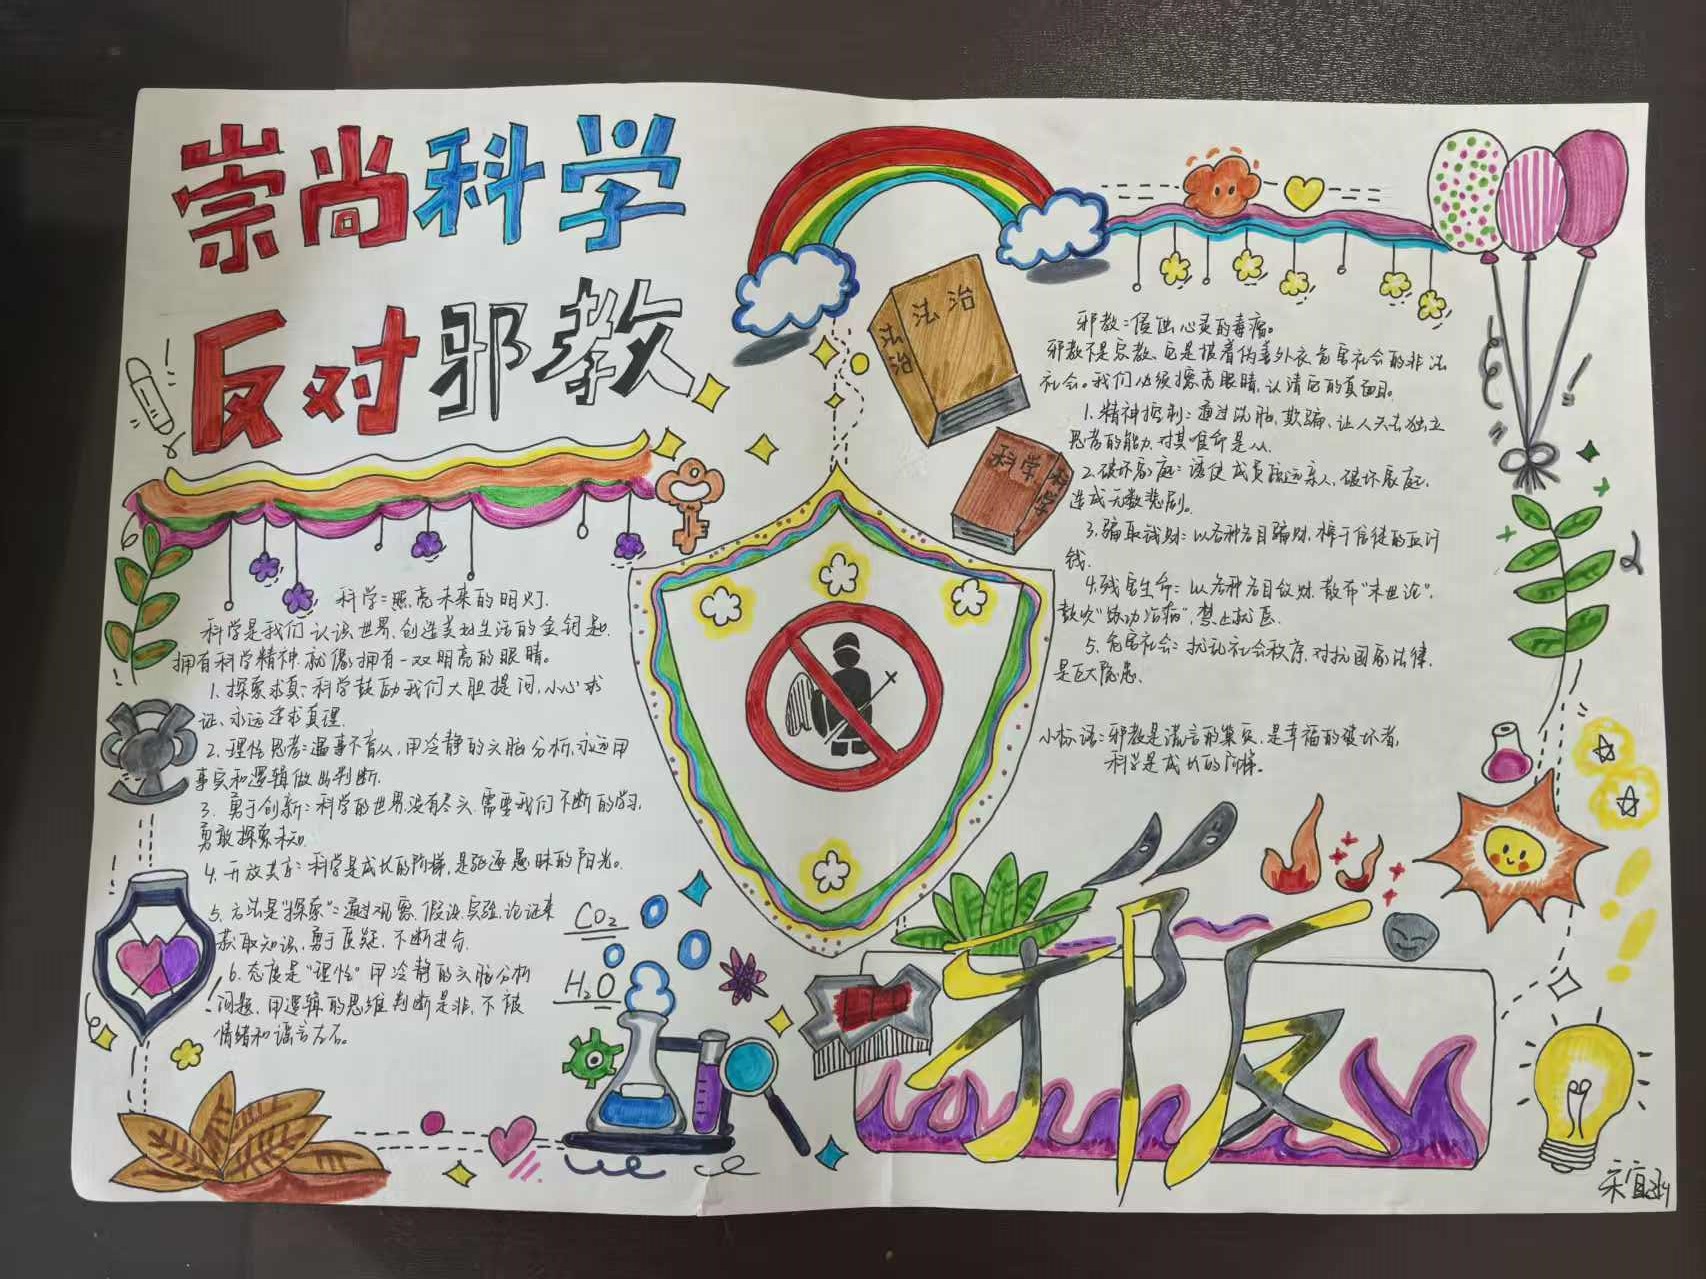 崇尚科学
反对邪教
科学:照亮未来的明灯.
科学是我们认识世界.创造美好生活的金钥匙.
拥有科学精神.就像拥有一双明亮的眼睛。
1.探索求真:科学鼓励我们大胆提问,小心求
证、永远追求真理.
2.理性思考:遇事不盲从,用冷静的头脑分析,永远用
事实和逻辑做出判断.
3.勇于创新:科学的世界没有尽头,需要我们不断的学习,
勇敢探索未知.
4.开放共享:科学是成长的阶梯,是驱逐愚昧的阳光。
5.方法是"探索":通过观察、假设、实验、论证来
获取知识,勇于质疑,不断进步.
6.态度是"理性"用冷静的头脑分析
问题,用逻辑的思维判断是非,不被
情绪和谣言左右。
CO2
H2O
法治
法治
科学
科学
邪教:侵蚀心灵的毒瘤。
邪教不是宗教、它是披着伪善外衣危害社会的非法
社会。我们必须擦亮眼睛,认清它的真面目。
1.精神控制:通过洗脑,欺骗、让人失去独立
思考的能力.对其唯命是从.
2.破坏家庭:诱使成员疏远亲人,破坏家庭,
造成无数悲剧。
3.骗取钱财:以各种名目骗财,榨干信徒的血汗
钱.
4.残害生命:以各种名目敛财.散布"末世论".
鼓吹"练功治病",禁止就医.
5.危害社会:扰乱社会秩序,对抗国家法律.
是巨大隐患.
小标语:邪教是谎言的巢穴,是幸福的破坏者,
科学是成长的阶梯。
报